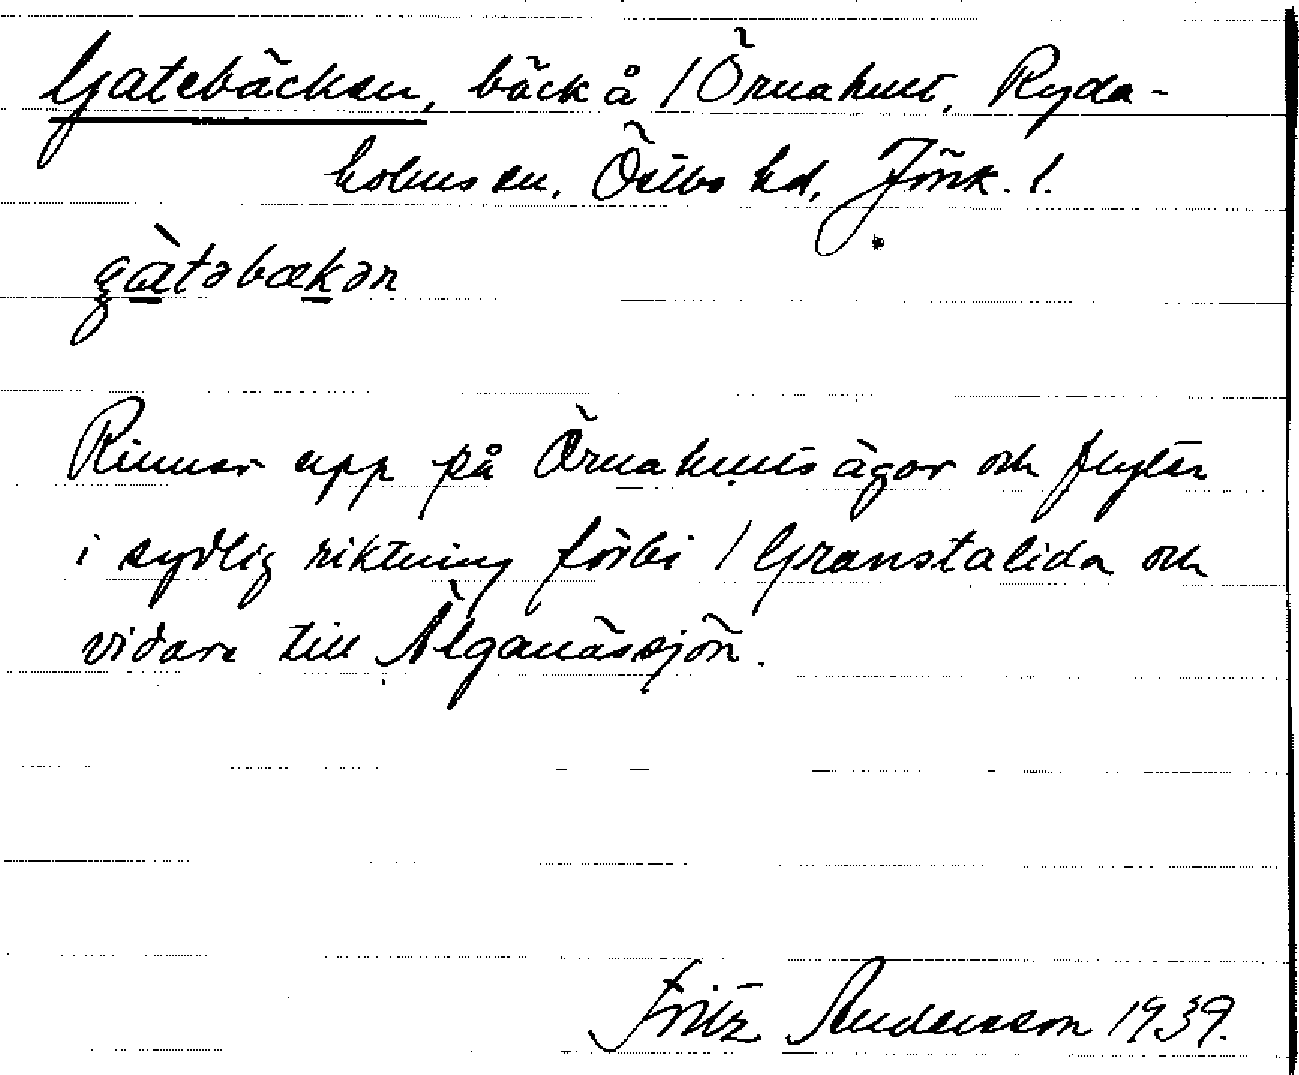 Gatebäcken, bäck å / Örnahult, Ryda-
holms sn, Östbo hd, Jönk. l.
gàtəbækən
Rinner upp på Örnahults ägor och flyter
i sydlig riktning förbi / Granstalida och
vidare till Älganässjön.
Fritz Andersson 1939.